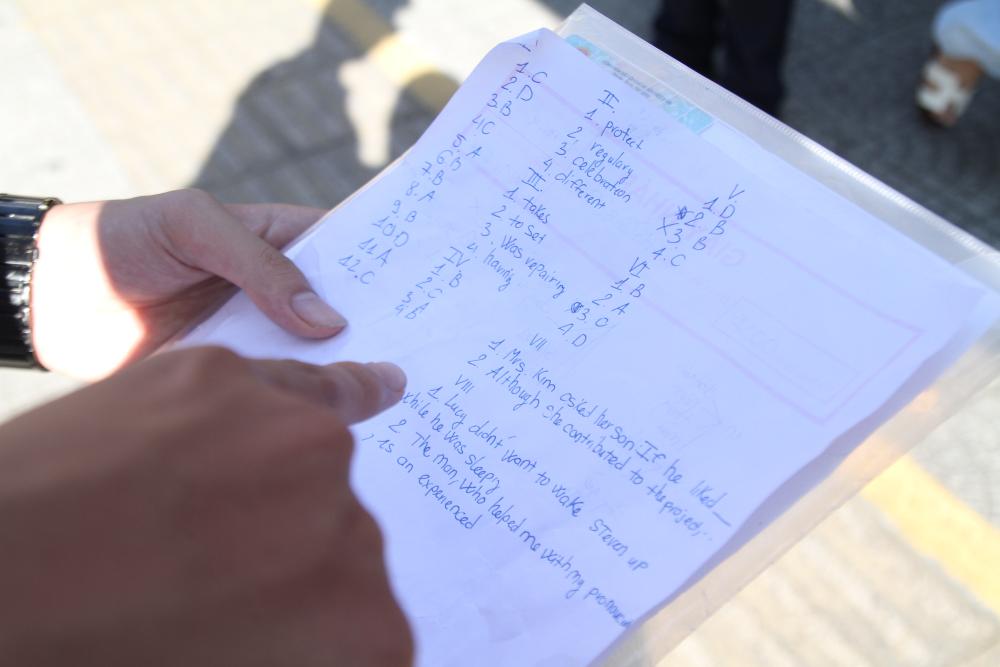 1. C
2. D
3. B
4. C
5. A
6. D
7. B
8. A
9. B
10. D
11. A
12. C
II.
1. protect
2. regulary
3. celebration
4. different
III.
1. takes
2 to set
3 was repairing
4. having
IV
1. B
2. C
3. A
4 B
V.
1. D
2. B
X3. B
4. C
VI
1. B
2 A
3. D
4. D
VII
1. Mrs. Kim asked her son if he liked
2 Although she contributed to the project,..
VIII
1. Lucy didn't want to wake Steven up
while he was sleepy
2 The man, who helped me with my pronounci
, is an experienced